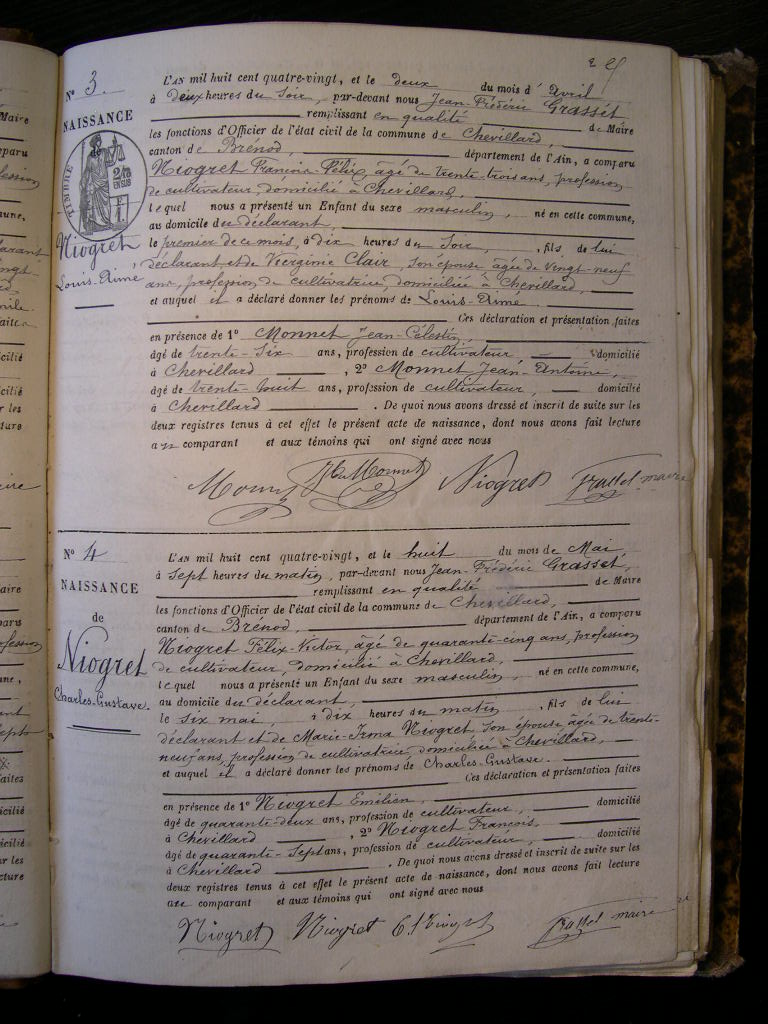 N° 3.
NAISSANCE
de
TIMBRE
2/10
EN SUS
Niogret
Louis-Aimé
L'AN mil huit cent quatre-vingt, et le deux du mois d'Avril
à deux heures du Soir, par-devant nous Jean-Frédéric Grasset
remplissant en qualité de Maire
les fonctions d'Officier de l'état civil de la commune de Chevillard,
canton de Brénod, département de l'Ain, a comparu
Niogret François-Félix, âgé de trente-trois ans, profession
de cultivateur, domicilié à Chevillard,
lequel nous a présenté un Enfant du sexe masculin, né en cette commune,
au domicile du déclarant,
le premier de ce mois, à dix heures du Soir, fils de lui
déclarant, et de Virginie Clair, son épouse, âgée de vingt-neuf
ans, profession de cultivatrice, domiciliée à Chevillard,
et auquel il a déclaré donner les prénoms de Louis-Aimé.
Ces déclaration et présentation faites
en présence de 1° Monnet Jean-Célestin,
âgé de trente-six ans, profession de cultivateur, domicilié
à Chevillard, 2° Monnet Jean-Antoine,
âgé de trente-huit ans, profession de cultivateur, domicilié
à Chevillard. De quoi nous avons dressé et inscrit de suite sur les
deux registres tenus à cet effet le présent acte de naissance, dont nous avons fait lecture
au comparant et aux témoins qui ont signé avec nous
Monnet Monnet Niogret Grasset maire
N° 4
NAISSANCE
de
Niogret
Charles-Gustave.
L'AN mil huit cent quatre-vingt, et le huit du mois de Mai,
à Sept heures du matin, par-devant nous Jean-Frédéric Grasset,
remplissant en qualité de Maire
les fonctions d'Officier de l'état civil de la commune de Chevillard,
canton de Brénod, département de l'Ain, a comparu
Niogret Félix-Victor, âgé de quarante-cinq ans, profession
de cultivateur, domicilié à Chevillard,
lequel nous a présenté un Enfant du sexe masculin, né en cette commune,
au domicile du déclarant,
le six mai, à dix heures du matin, fils de lui
déclarant et de Marie-Irma Niogret son épouse âgée de trente-
neuf ans, profession de cultivatrice, domiciliée à Chevillard,
et auquel il a déclaré donner les prénoms de Charles-Gustave.
Ces déclaration et présentation faites
en présence de 1° Niogret Emilien,
âgé de quarante-deux ans, profession de cultivateur, domicilié
à Chevillard, 2° Niogret François,
âgé de quarante-sept ans, profession de cultivateur, domicilié
à Chevillard. De quoi nous avons dressé et inscrit de suite sur les
deux registres tenus à cet effet le présent acte de naissance, dont nous avons fait lecture
au comparant et aux témoins qui ont signé avec nous
Niogret Niogret Niogret Grasset maire